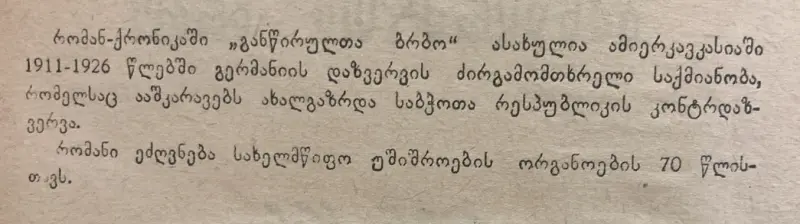 რომან-ქრონიკაში „განწირულთა ბრბო“ ასახულია ამიერკავკასიაში
1911-1926 წლებში გერმანიის დაზვერვის ძირგამომთხრელი საქმიანობა,
რომელსაც ააშკარავებს ახალგაზრდა საბჭოთა რესპუბლიკის კონტრდაზ-
ვერვა.
რომანი ეძღვნება სახელმწიფო უშიშროების ორგანოების 70 წლის-
თავს.